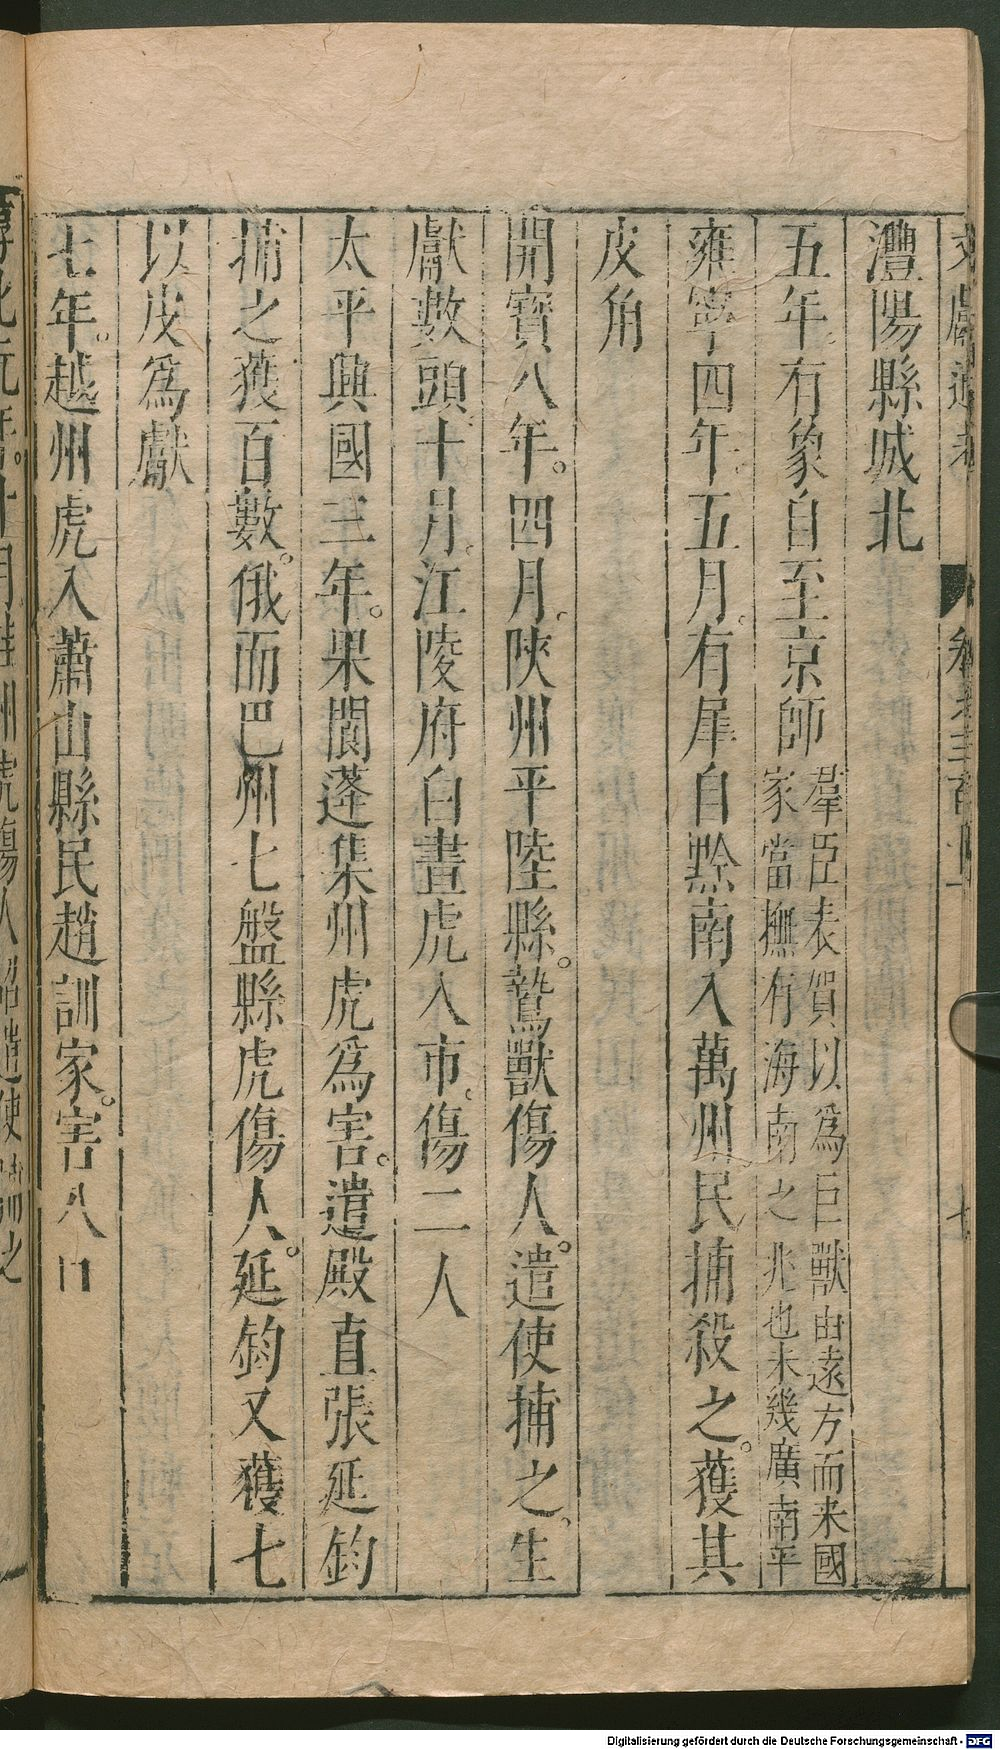 澧陽縣城北
五年。有象自至京師羣臣表賀以爲巨獸由遠方而来國
家當撫有海南之兆也未幾廣南平
雍寧四年。五月。有犀自黔南入萬州民捕殺之。獲其
皮角
開寳八年。四月。陝州平陸縣。鷙獸傷人。遣使捕之。生
獻數頭。十月。江陵府白晝虎入市。傷二人
太平興國三年。果閬蓬集州虎爲害。遣殿直張延鈞
捕之獲百數。俄而巴州七盤縣虎傷人。延鈞又獲七
以皮爲獻
七年。越州虎入蕭山縣民趙訓家。害八口
Digitalisierung gefördert durch die Deutsche Forschungsgemeinschaft - DFG